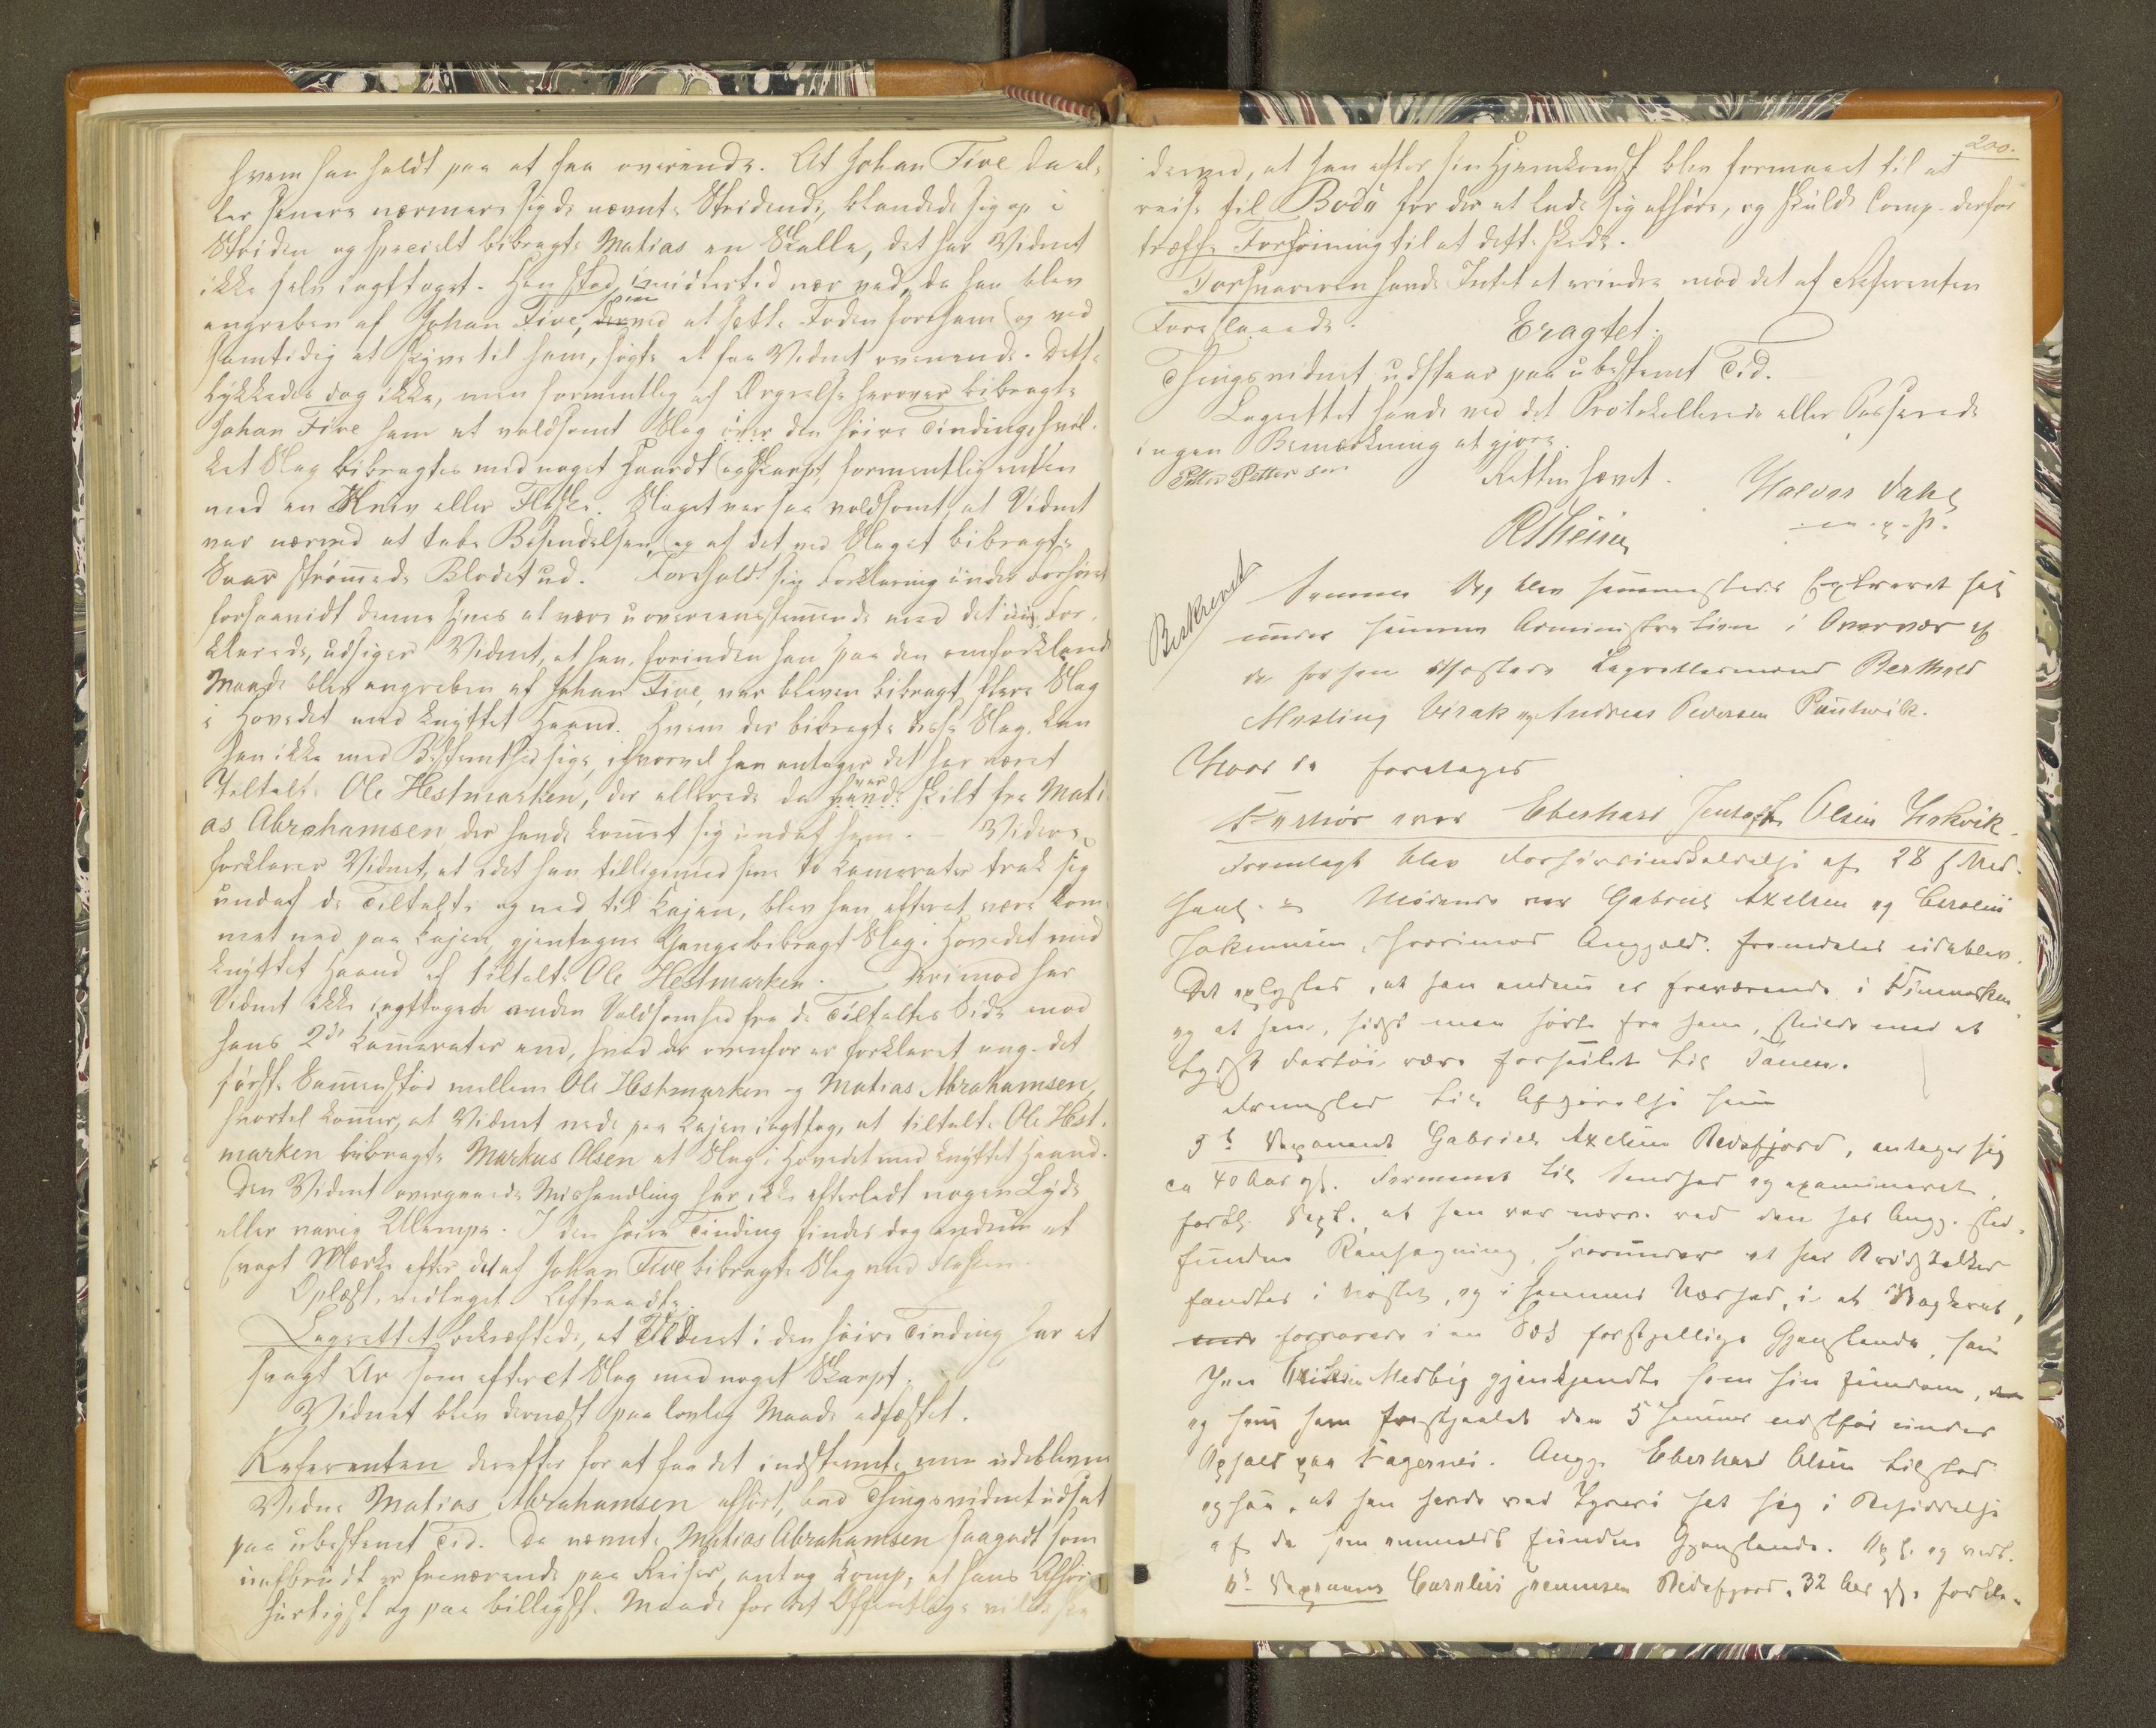 hvem han holdt paa at faa overende. At Johan Five da el-
ler senere nærmere sig de nævnte Stridende, blandede sig op i
Striden og specielt bibragte Matias en Skalle, det har Vidnet
ikke selv iagttaget. Han stod imidlertid nær ved, da han blev
angreben af Johan Five, som ved at sætte Foden for ham og ved
samtidig at skyve til ham, søgte at faa Vidnet overende. Dette
lykkedes dog ikke, men formentlig af Ærgrelse herover bibragte
Johan Five ham et voldsomt Slag over den høire Tinding, hvil-
ket Slag bibragtes med noget haardt og skarpt, formentlig enten
med en Kniv eller Flaske. Slaget var saa voldsomt, at Vidnet
var nærved at tabe Besindelsen, og af det ved Slaget bibragte
Saar strømmede Blodet ud. Foreholdt sin Forklaring under Forhøret
forsaavidt denne synes at være uoverensstemmende med det nu For-
klarede, udsiger Vidnet, at han, forinden han paa den omforklarede
Maade blev angreben af Johan Five, var bleven bibragt flere Slag
i Hovedet med knyttet Haand. Hvem der bibragte disse Slag, kan
han ikke med Bestemthed sige, ihvorvel han antager det har været
Tiltalte Ole Hestmarken, der allerede da var skilt fra Mati-
as Abrahamsen, der havde kommet sig undaf ham. – Videre
forklarer Vidnet, at idet han tilligemed sine to Kamerater trak sig
undaf de Tiltalte og ned til Kajen, blev han efterat være kom-
met ned paa Kajen, gjentagne Gange bibragt Slag i Hovedet med
knyttet Haand af tiltalte Ole Hestmarken. Derimod har
Vidnet ikke iagttaget anden Voldsomhed fra de Tiltaltes Side mod
hans 2de Kamerater end, hvad der ovenfor er forklaret ang. det
første Sammenstød mellem Ole Hestmarken og Matias Abrahamsen,
hvortil kommer, at Vidnet nede paa Kajen iagttog, at tiltalte Ole Hest-
marken bibragte Markus Olsen et Slag i Hovedet med knyttet Haand.
Den Vidnet overgaaede Mishandling har ikke efterladt nogen Lyde
eller varig Ulempe. I den høire Tinding findes dog endnu et
svagt Mærke efter det af Johan Five bibragte Slag med Flasken.
Oplæst, vedtaget. Aftraadte.
Lagrettet bekræftede, at Vidnet i den høire Tinding har et
svagt Ar som efter et Slag med noget Skarpt.
Vidnet blev dernæst paa lovlig Maade edfæstet.
Referenten derefter for at faa det indstevnte men udeblevne
Vidne Matias Abrahamsen afhørt, bad Thingsvidnet udsat
paa ubestemt Tid. Da nævnte Matias Abrahamsen saagodt som
uafbrudt er fraværende paa Reiser, antog Comp., at hans Afhør
hurtigst og paa billigste Maade for det Offentlige vilde ske
200.
derved, at han efter sin Hjemkomst blev formaaet til at
reise til Bodø for der at lade sig afhøre, og skulde Comp. derfor
træffe Forføining til at dette skede.
Forsvareren havde Intet at erindre mod det af Referenten
Foreslaaede.
Eragtet:
Thingsvidnet udstaar paa ubestemt Tid.
Lagrettet havde ved det Protokollerede eller Passerede
ingen Bemærkning at gjøre.
Petter Pettersen
Retten hævet.
Halvor Dahl
m. p. P.
Beskrevet
Samme Dag blev sammesteds Extraret sat
under samme Administration i Overvær af
de for den edfæstede Lagrettesmænd Berthold
Mysling Virak og Andreas Pedersen
Hvor da foretages
Forhør over Eberhard Jentoft Olsen
Fremlagt blev Forhørsindkaldelse af 28 f. Md.
Mødende var Gabriel Axelsen og Cornelius
hvorimod Angjæld. fremdeles udeblev.
Det oplystes, at han endnu er fraværende i Finmarken
og at han, sidst man hørte fra ham, skulde med et
Fartøi være forseilet til Tanen.
Fremstod til Afhørelse som
5te Deponent Gabriel Axelsen Bedefjord, antager sig
ca 40 Aar gl. Formanet til Sandhed og examineret,
forkl. Dept. at han var nærv. ved den hos Angj. sted-
fundne Ransagning, hvorunder et Par
fandtes i Nøstet, og i sammes Nærhed, i et
forvarede i en Sæk forskjellige Gjenstande, som
Medbø gjenkjendte som sin Eiendom,
og som ham frastjaalet den 5 Januar under
Ophold paa Fagernes. Angj. Eberhard Olsen tilstod
ogsaa, at han havde ved Tyveri sat sig i Besiddelse
af de som anmeldt fundne Gjenstande. Opl. og vedt.
6te Deponent Cornelius Bedefjord, 32 Aar gl. forkla-